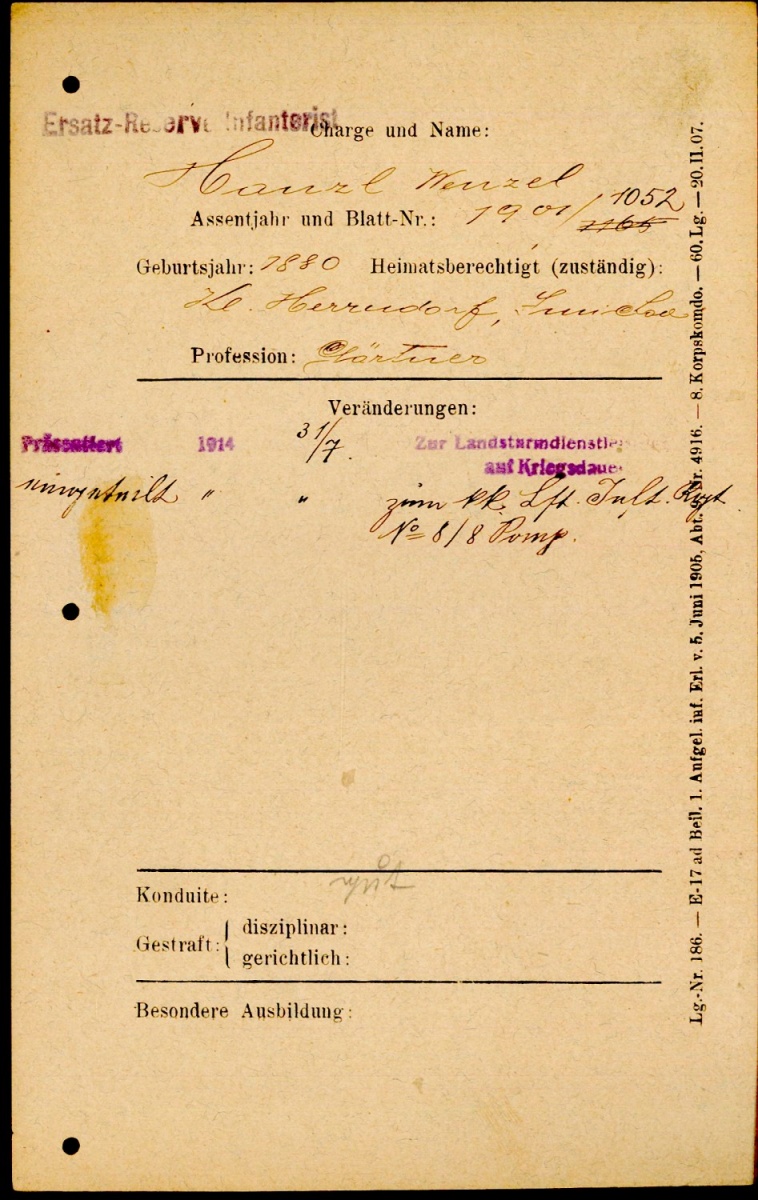 Ersatz-Reserve Infanterist
Charge und Name:
Hanzl Wenzel
Assentjahr und Blatt-Nr.: 1901/1052 1165
Geburtsjahr: 1880 Heimatsberechtigt (zuständig):
Kl. Herrndorf,
Profession: Gärtner
Veränderungen:
Präsentiert 1914 31/7. Zur Landsturmdienstle
auf Kriegsdaue
eingeteilt " " zum kk. Lst. Inft. Rgt
No 8/8 Komp.
Konduite: gut
Gestraft: disziplinar:
gerichtlich:
Besondere Ausbildung:
Lg.-Nr. 186. — E-17 ad Beil. 1. Aufgel. inf. Erl. v. 5. Juni 1905, Abt. Nr. 4916. — 8. Korpskomdo. — 60. Lg. — 20. II. 07.